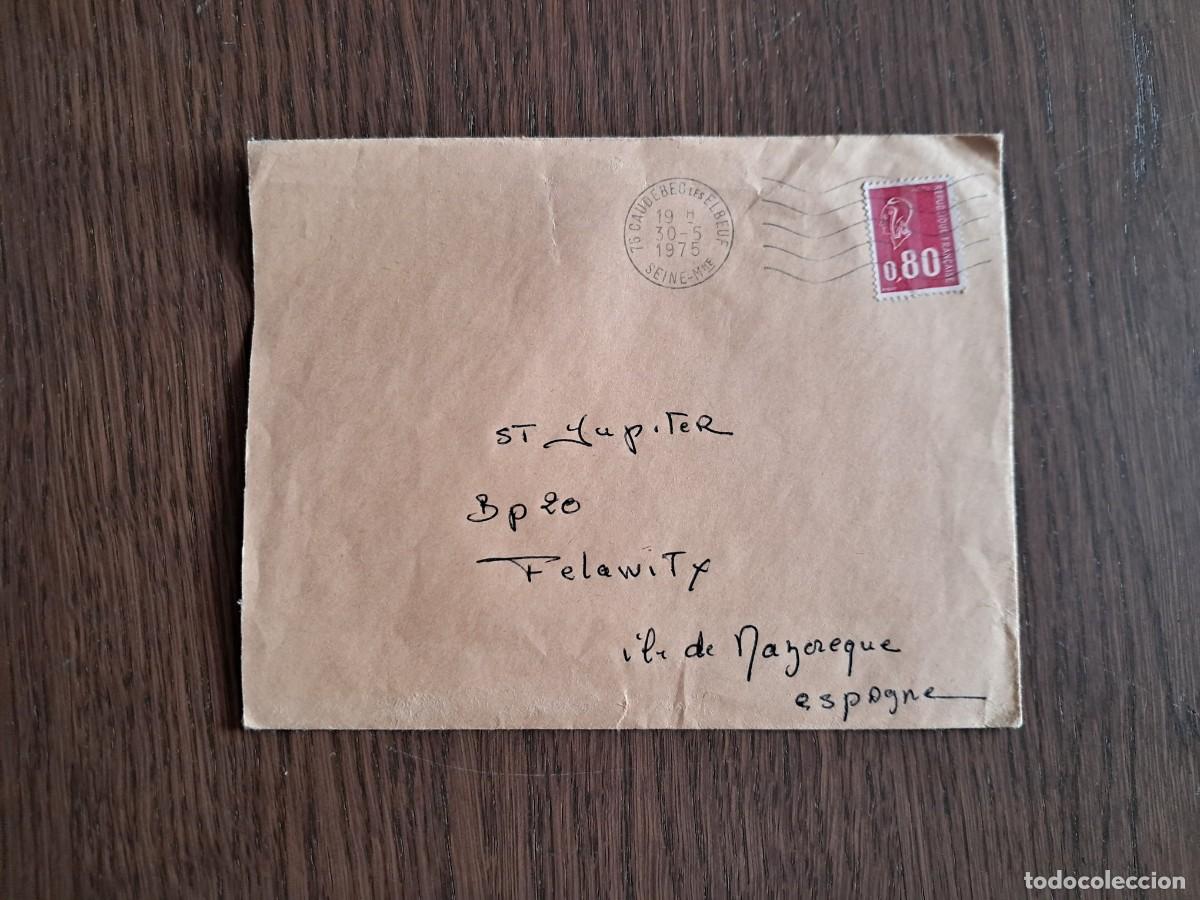 76 CAUDEBEC LES ELBEUF
19 H
30-5
1975
SEINE-Mme
REPUBLIQUE FRANCAISE
0,80
ST Jupiter
Bp 20
Felawitx
île de Mayoreque
espagne
todocoleccion